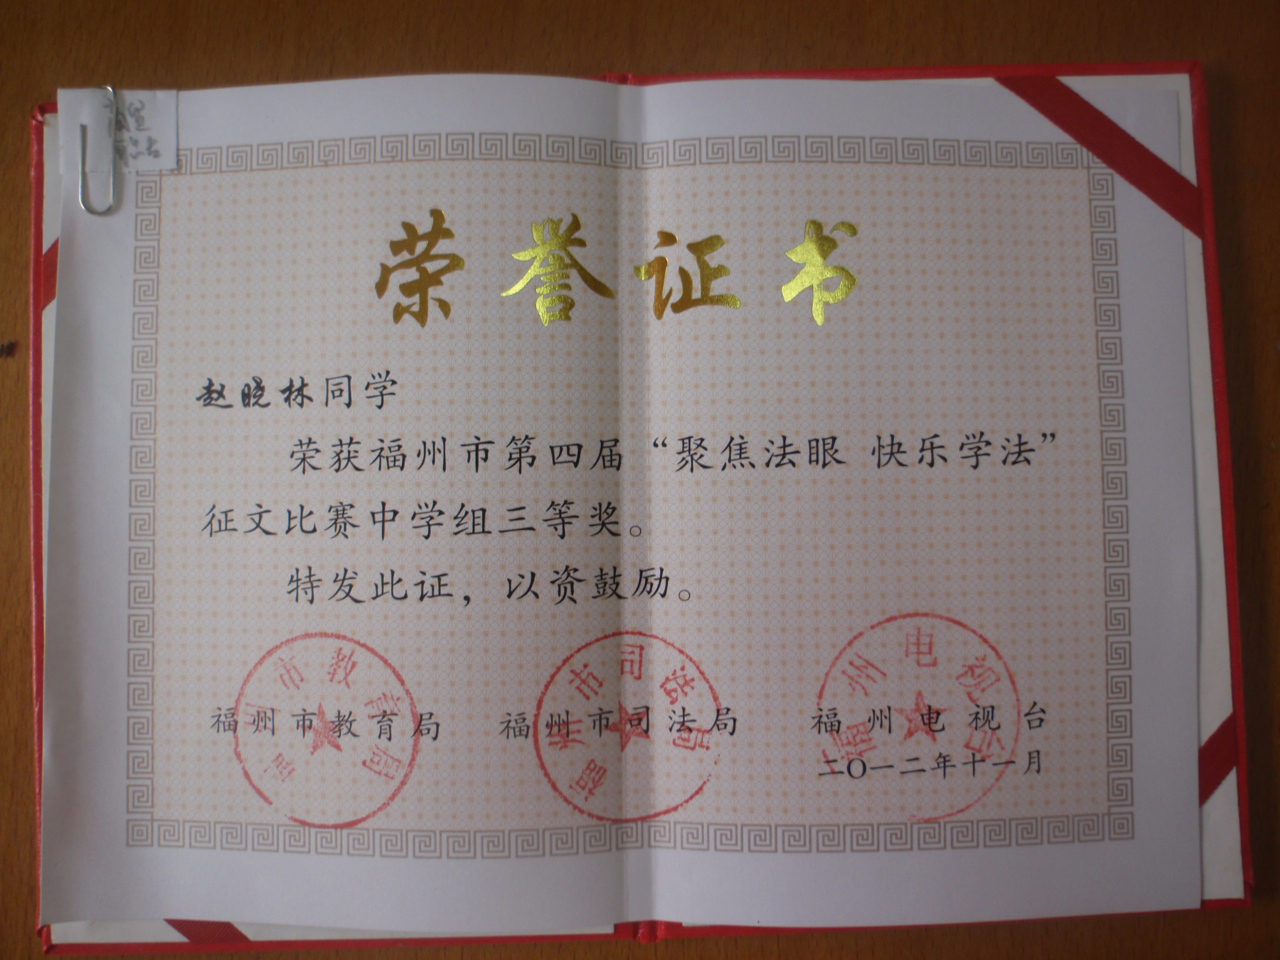 荣誉证书
赵晓林同学
荣获福州市第四届“聚焦法眼 快乐学法”
征文比赛中学组三等奖。
特发此证，以资鼓励。
福州市教育局 福州市司法局 福州电视台
二〇一二年十一月
州市教育局
福州市司法局
福州电视台